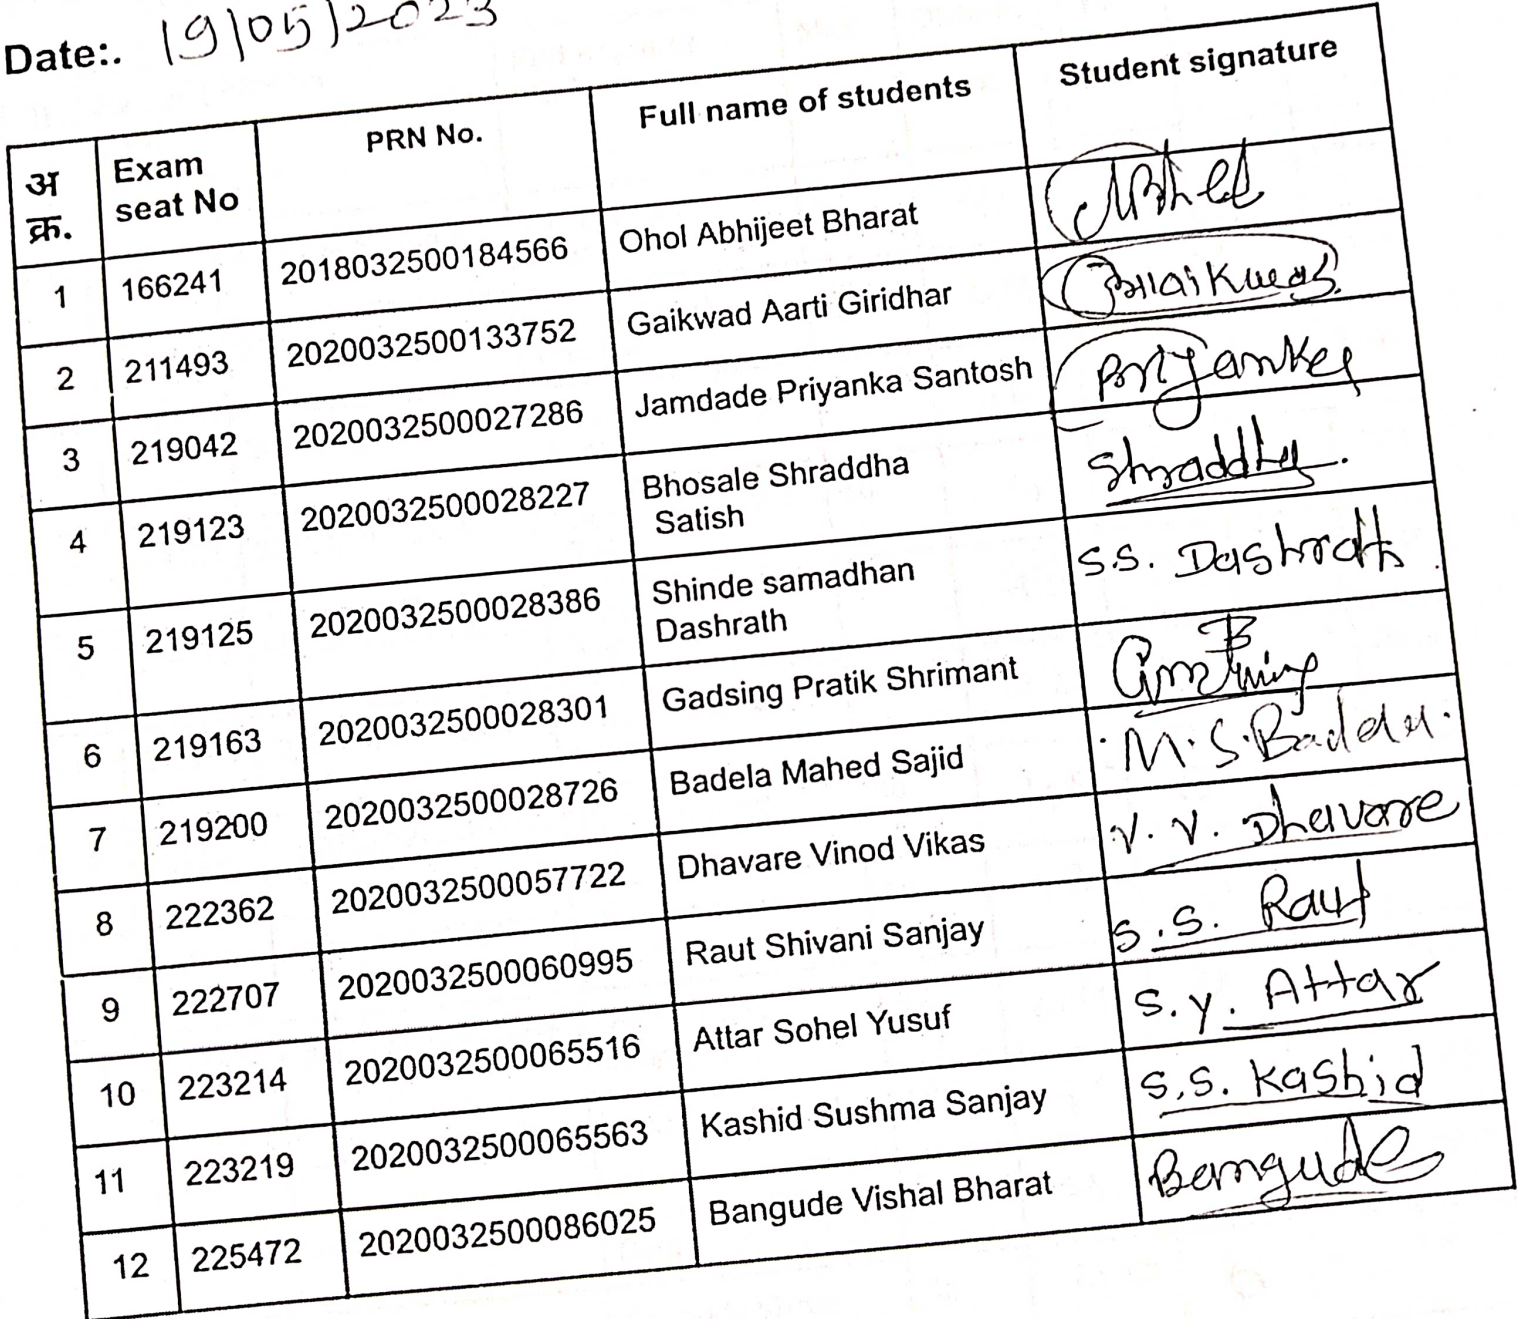 Date:. 19/05/2023
अ क्र. Exam seat No PRN No. Full name of students Student signature
1 166241 2018032500184566 Ohol Abhijeet Bharat
2 211493 2020032500133752 Gaikwad Aarti Giridhar
3 219042 2020032500027286 Jamdade Priyanka Santosh Priyanka
4 219123 2020032500028227 Bhosale Shraddha Satish Shraddha
5 219125 2020032500028386 Shinde samadhan Dashrath S.S. Dashrath
6 219163 2020032500028301 Gadsing Pratik Shrimant
7 219200 2020032500028726 Badela Mahed Sajid M.S.
8 222362 2020032500057722 Dhavare Vinod Vikas V. V. Dhavare
9 222707 2020032500060995 Raut Shivani Sanjay S.S. Raut
10 223214 2020032500065516 Attar Sohel Yusuf S.y. Attar
11 223219 2020032500065563 Kashid Sushma Sanjay S.S. Kashid
12 225472 2020032500086025 Bangude Vishal Bharat Bangude